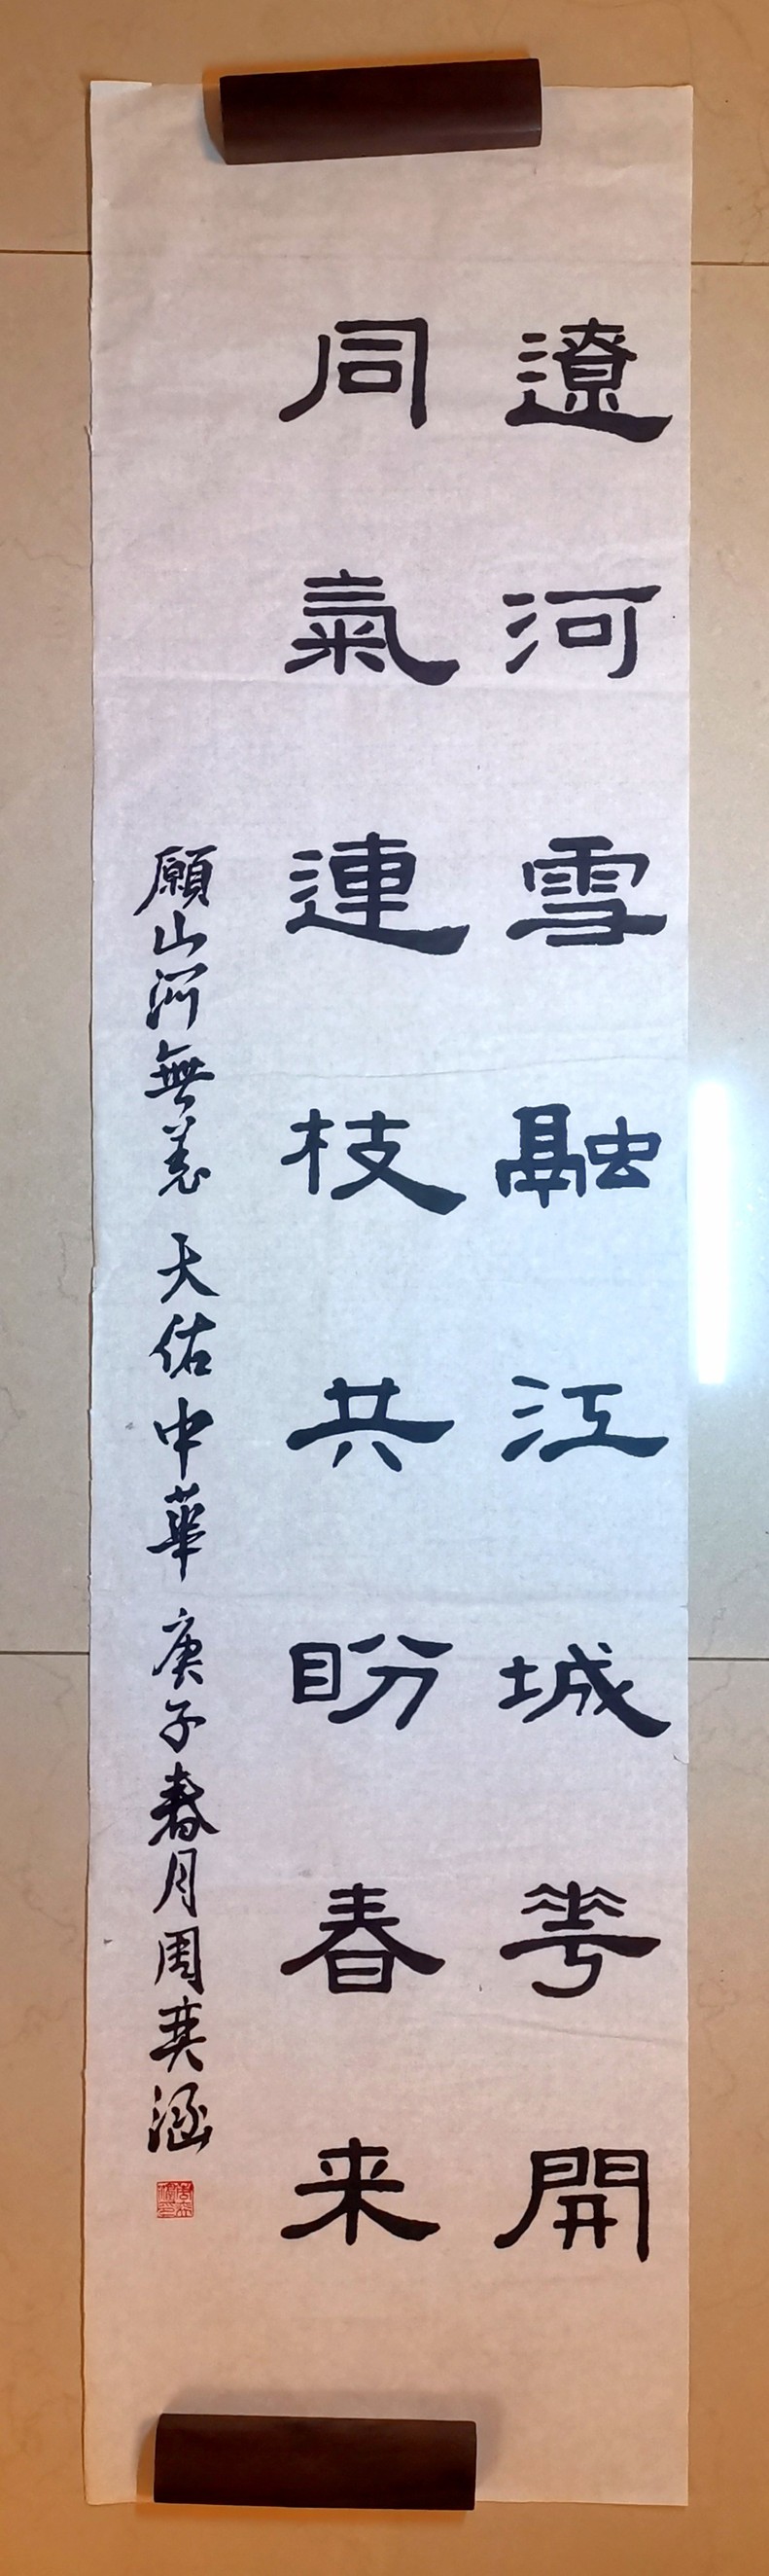 遼河雪融江城花開
同氣連枝共盼春来
願山河無恙 天佑中華 庚子春月周奕涵